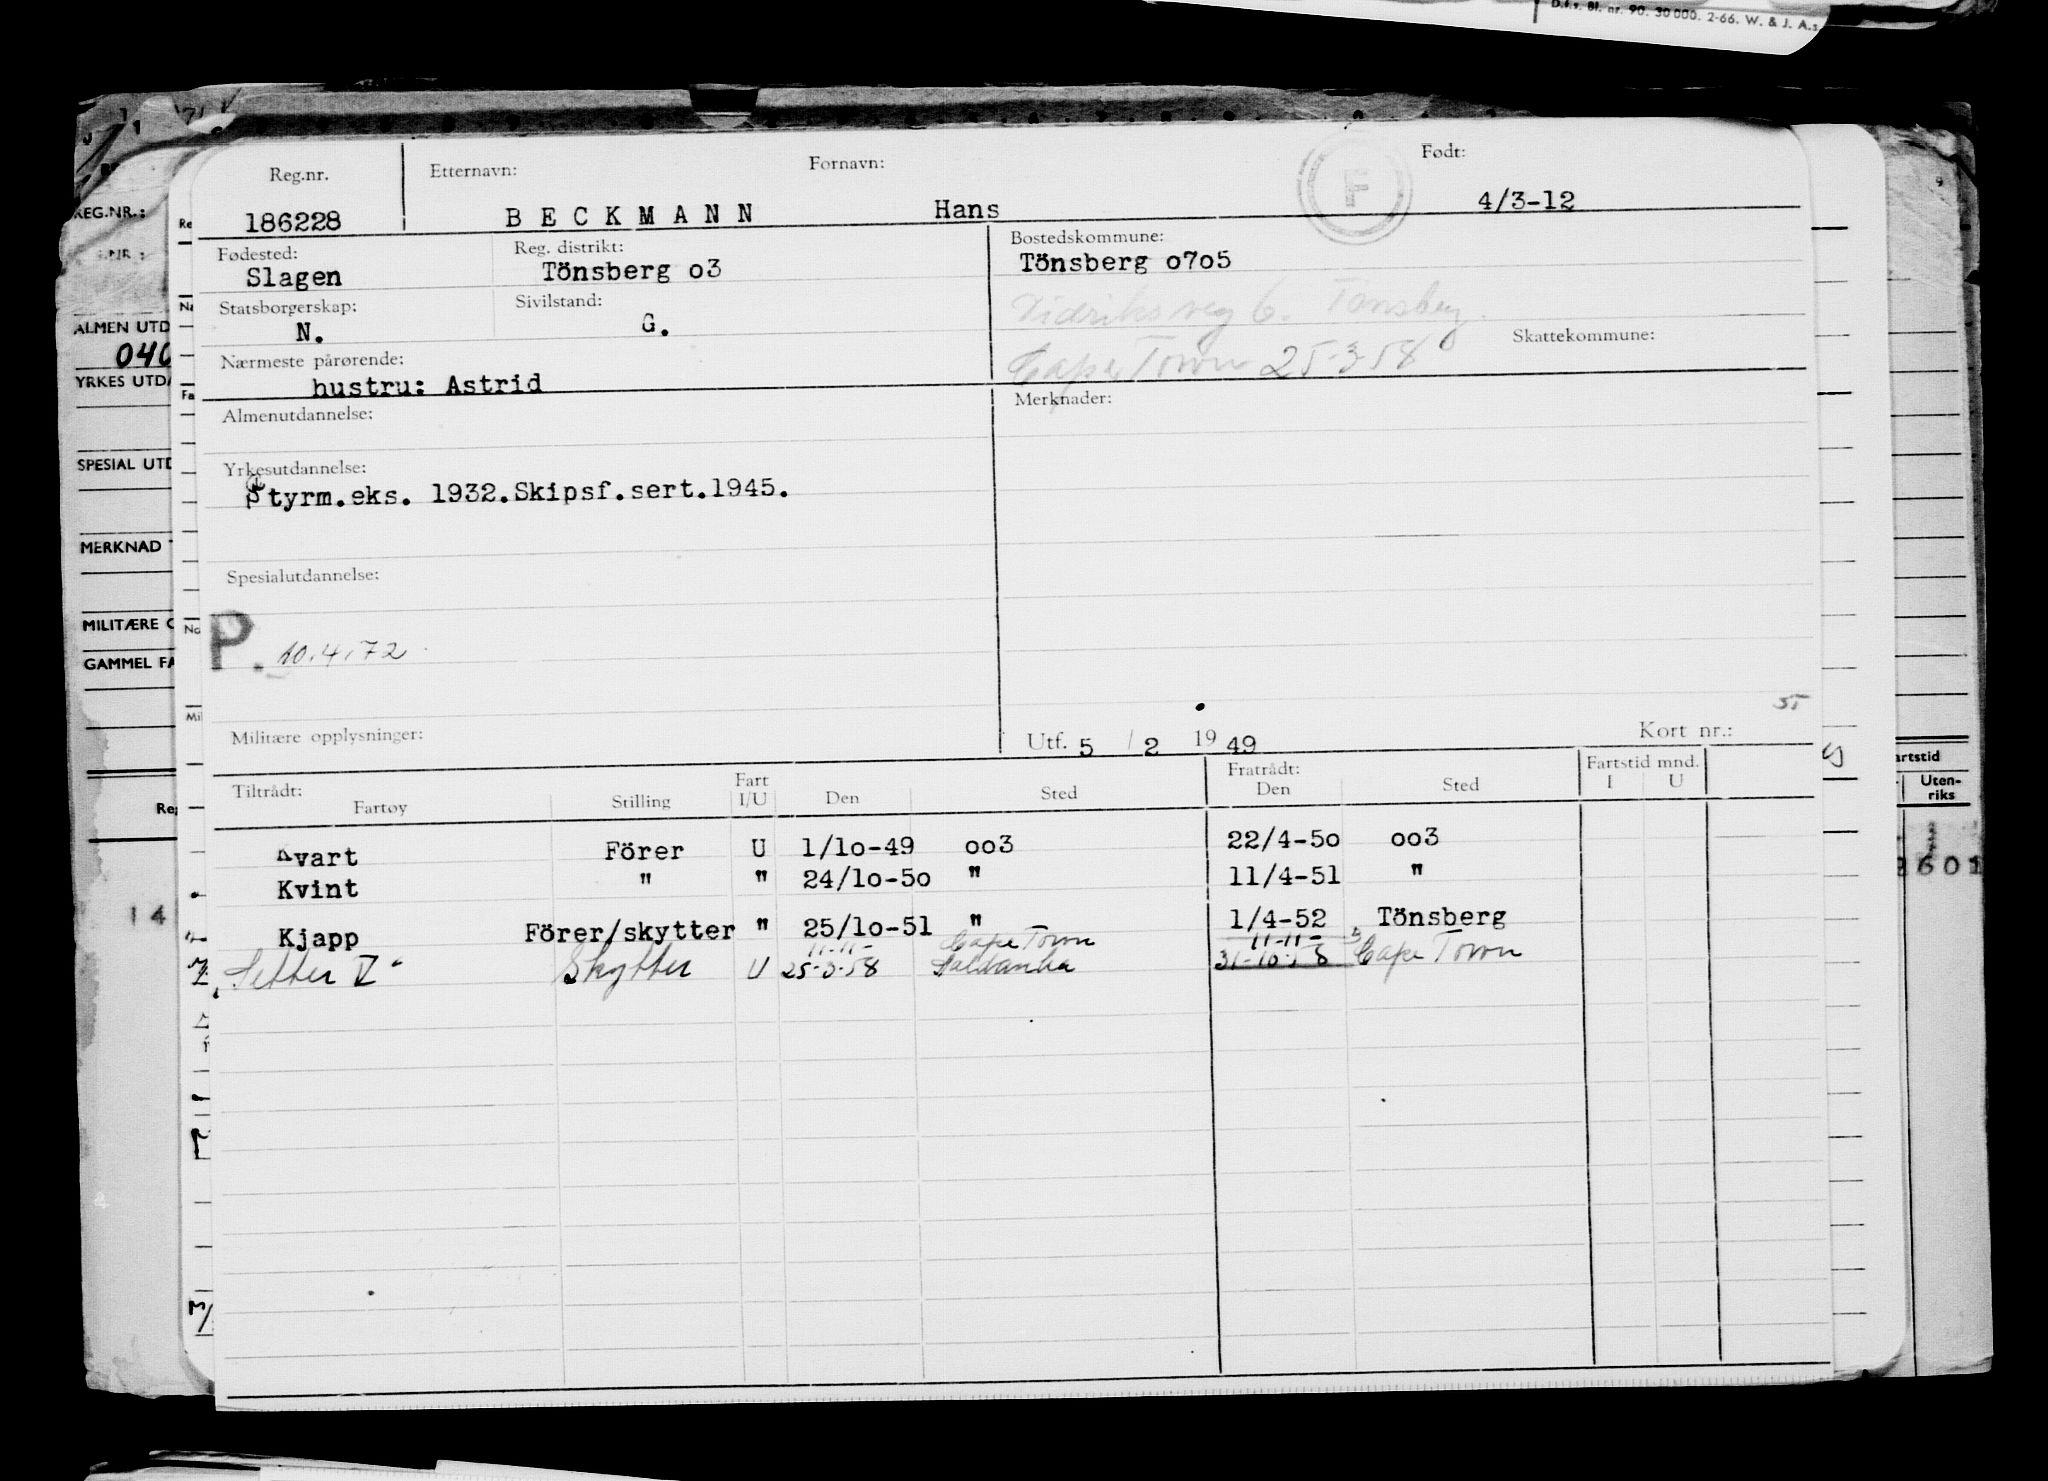 D.f.s. Bl. nr. 90. 30 000. 2-66. W. & J. A.s
Reg.nr. Etternavn: Fornavn: Født:
186228 BECKMANN Hans F 4/3-12
Fødested: Reg. distrikt: Bostedskommune:
Slagen Tönsberg o3 Tönsberg o7o5
Statsborgerskap: Sivilstand:
N. G. Tönsberg.
Skattekommune:
Nærmeste pårørende: Cape Town 25-3-58
hustru: Astrid
Almenutdannelse: Merknader:
Yrkesutdannelse:
Styrm.eks. 1932.Skipsf.sert.1945.
Spesialutdannelse:
P. 10.4.72
Militære opplysninger: Utf. 5 / 2 19 49 Kort nr.:
Tiltrådt: Fart Fratrådt: Fartstid mnd.
Fartøy Stilling I/U Den Sted Den Sted I U
Kvart Förer U 1/1o-49 oo3 22/4-5o oo3
Kvint " " 24/1o-5o " 11/4-51 "
Kjapp Förer/skytter " 25/1o-51 " 1/4-52 Tönsberg
11-11- Cape Town 11-11-
Setter V Skytter U 25-3-58 Saldanha 31-10-58 Cape Town
REG.NR.:
ALMEN UTD
040
YRKES UTDA
SPESIAL UTD
MERKNAD
MILITÆRE O
GAMMEL FA
Reg
14
artstid
Uten-
riks
2601